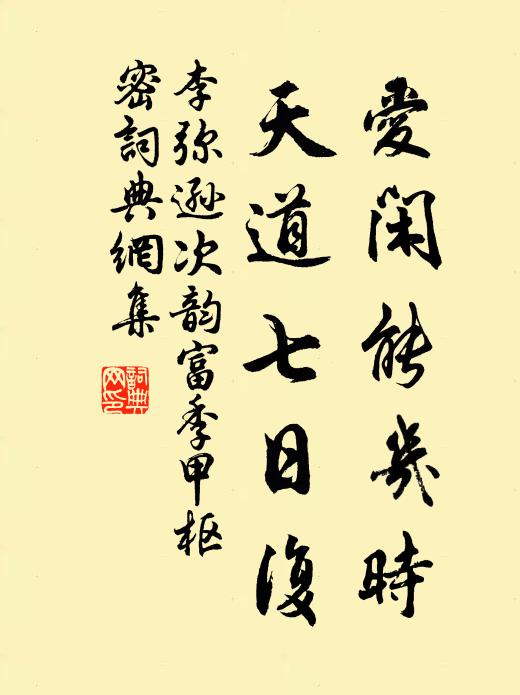 愛閑能幾時
天道七日復
李弥遜次韵富季甲枢
密詞典網集
詞典
网印